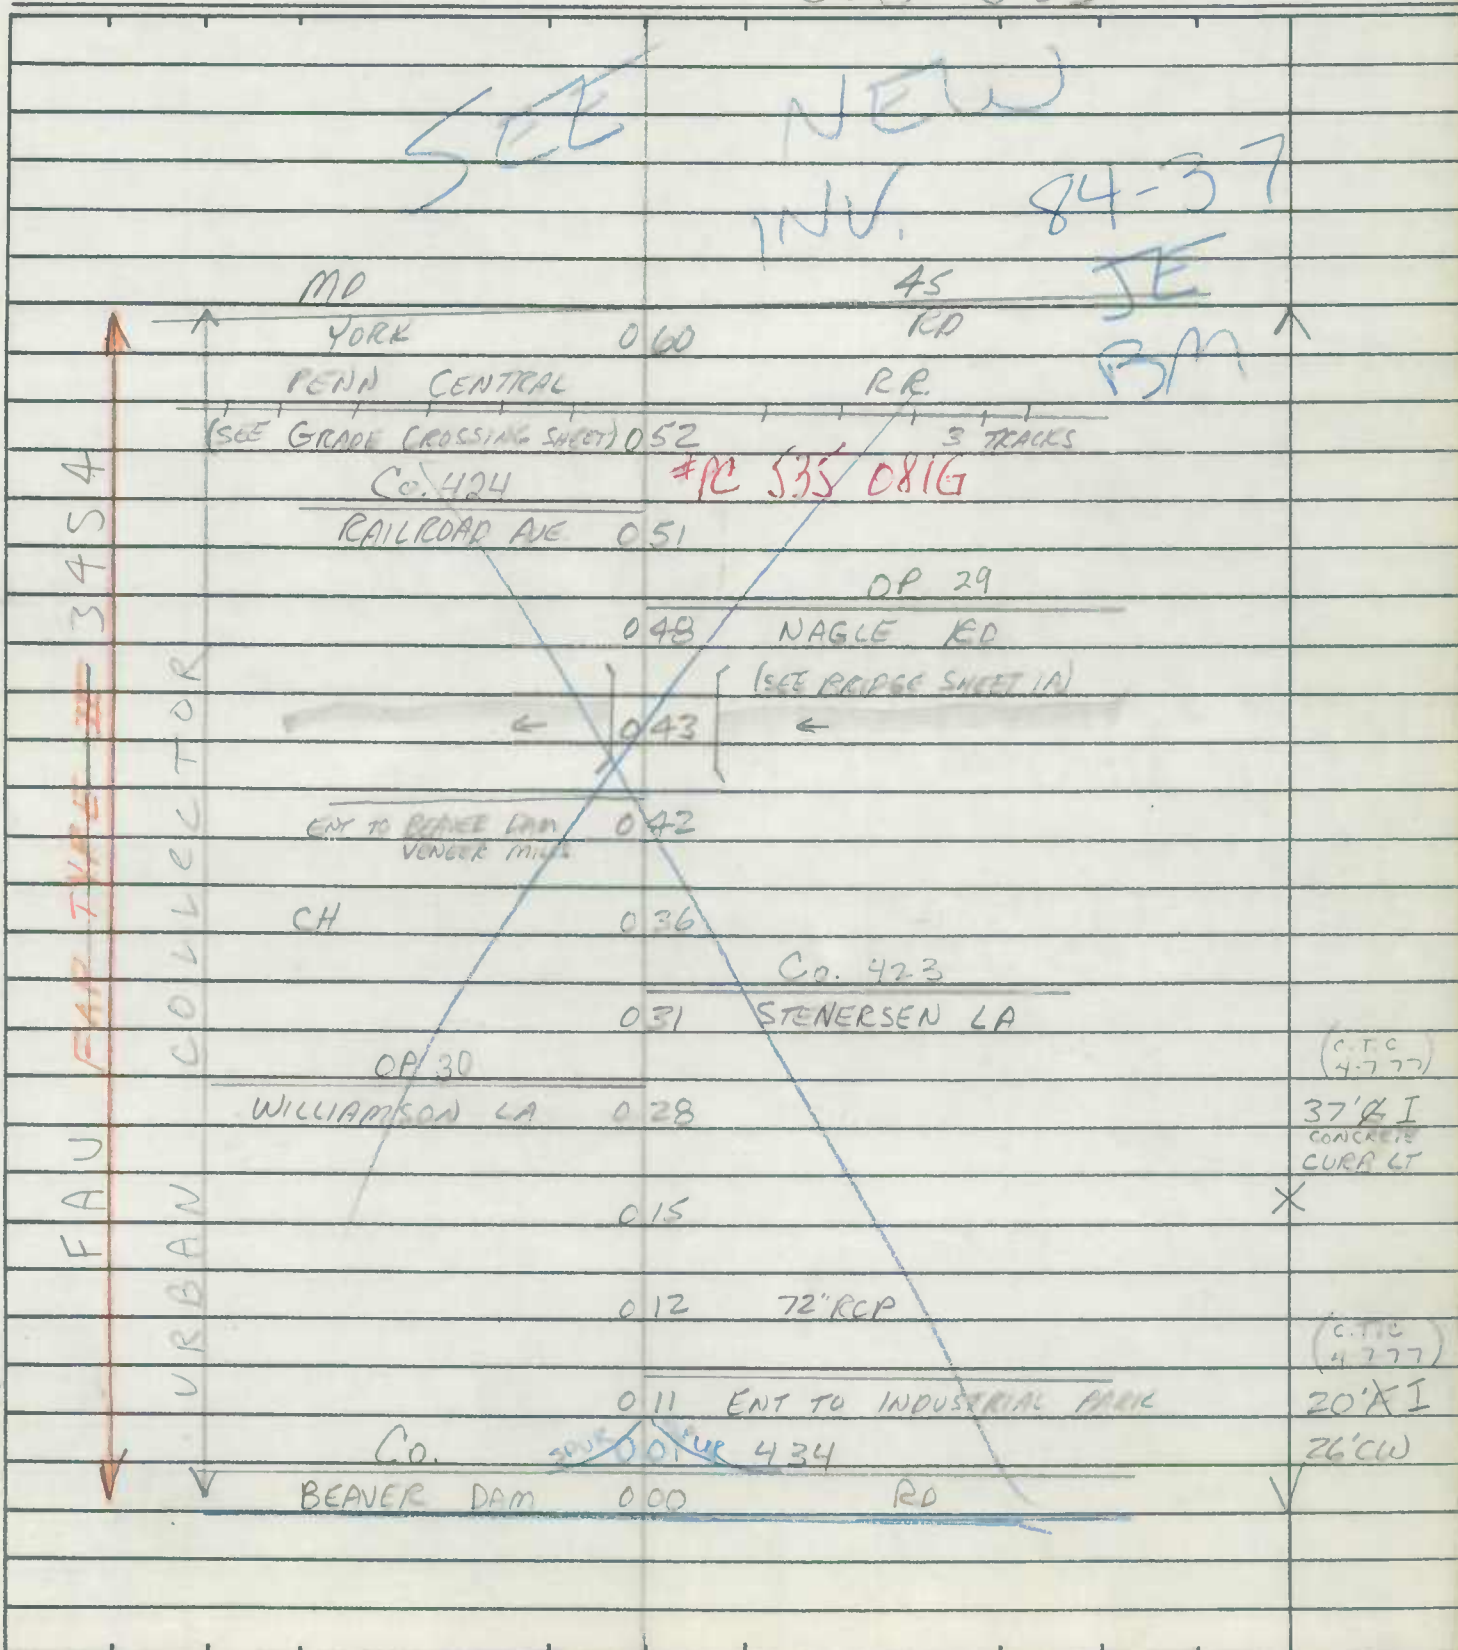 SEE NEW
INV. 84-37
JE
BM
MD 45
YORK 0 60 RD
PENN CENTRAL R.R.
(SEE GRADE CROSSING SHEET) 0 52 3 TRACKS
#PC 535 081G
Co. 424
RAILROAD AVE 0 51
OP 29
0 48 NAGLE RD
(SEE BRIDGE SHEET 1A)
← 0 43 ←
ENT TO BEAVER DAM 0 42
VENEER MILLS
CH 0 36
Co. 423
0 31 STENERSEN LA
OP 30
WILLIAMSON LA 0 28
0 15
0 12 72" RCP
0 11 ENT TO INDUSTRIAL PARK
Co. SPUR 0 01 SPUR 434
BEAVER DAM 0 00 RD
FAU FAP TYPE II 3454
URBAN COLLECTOR
(C.T.C
4-7-77)
37' G I
CONCRETE
CURB LT
(C.T.C
4-7-77)
20' I
26' CW